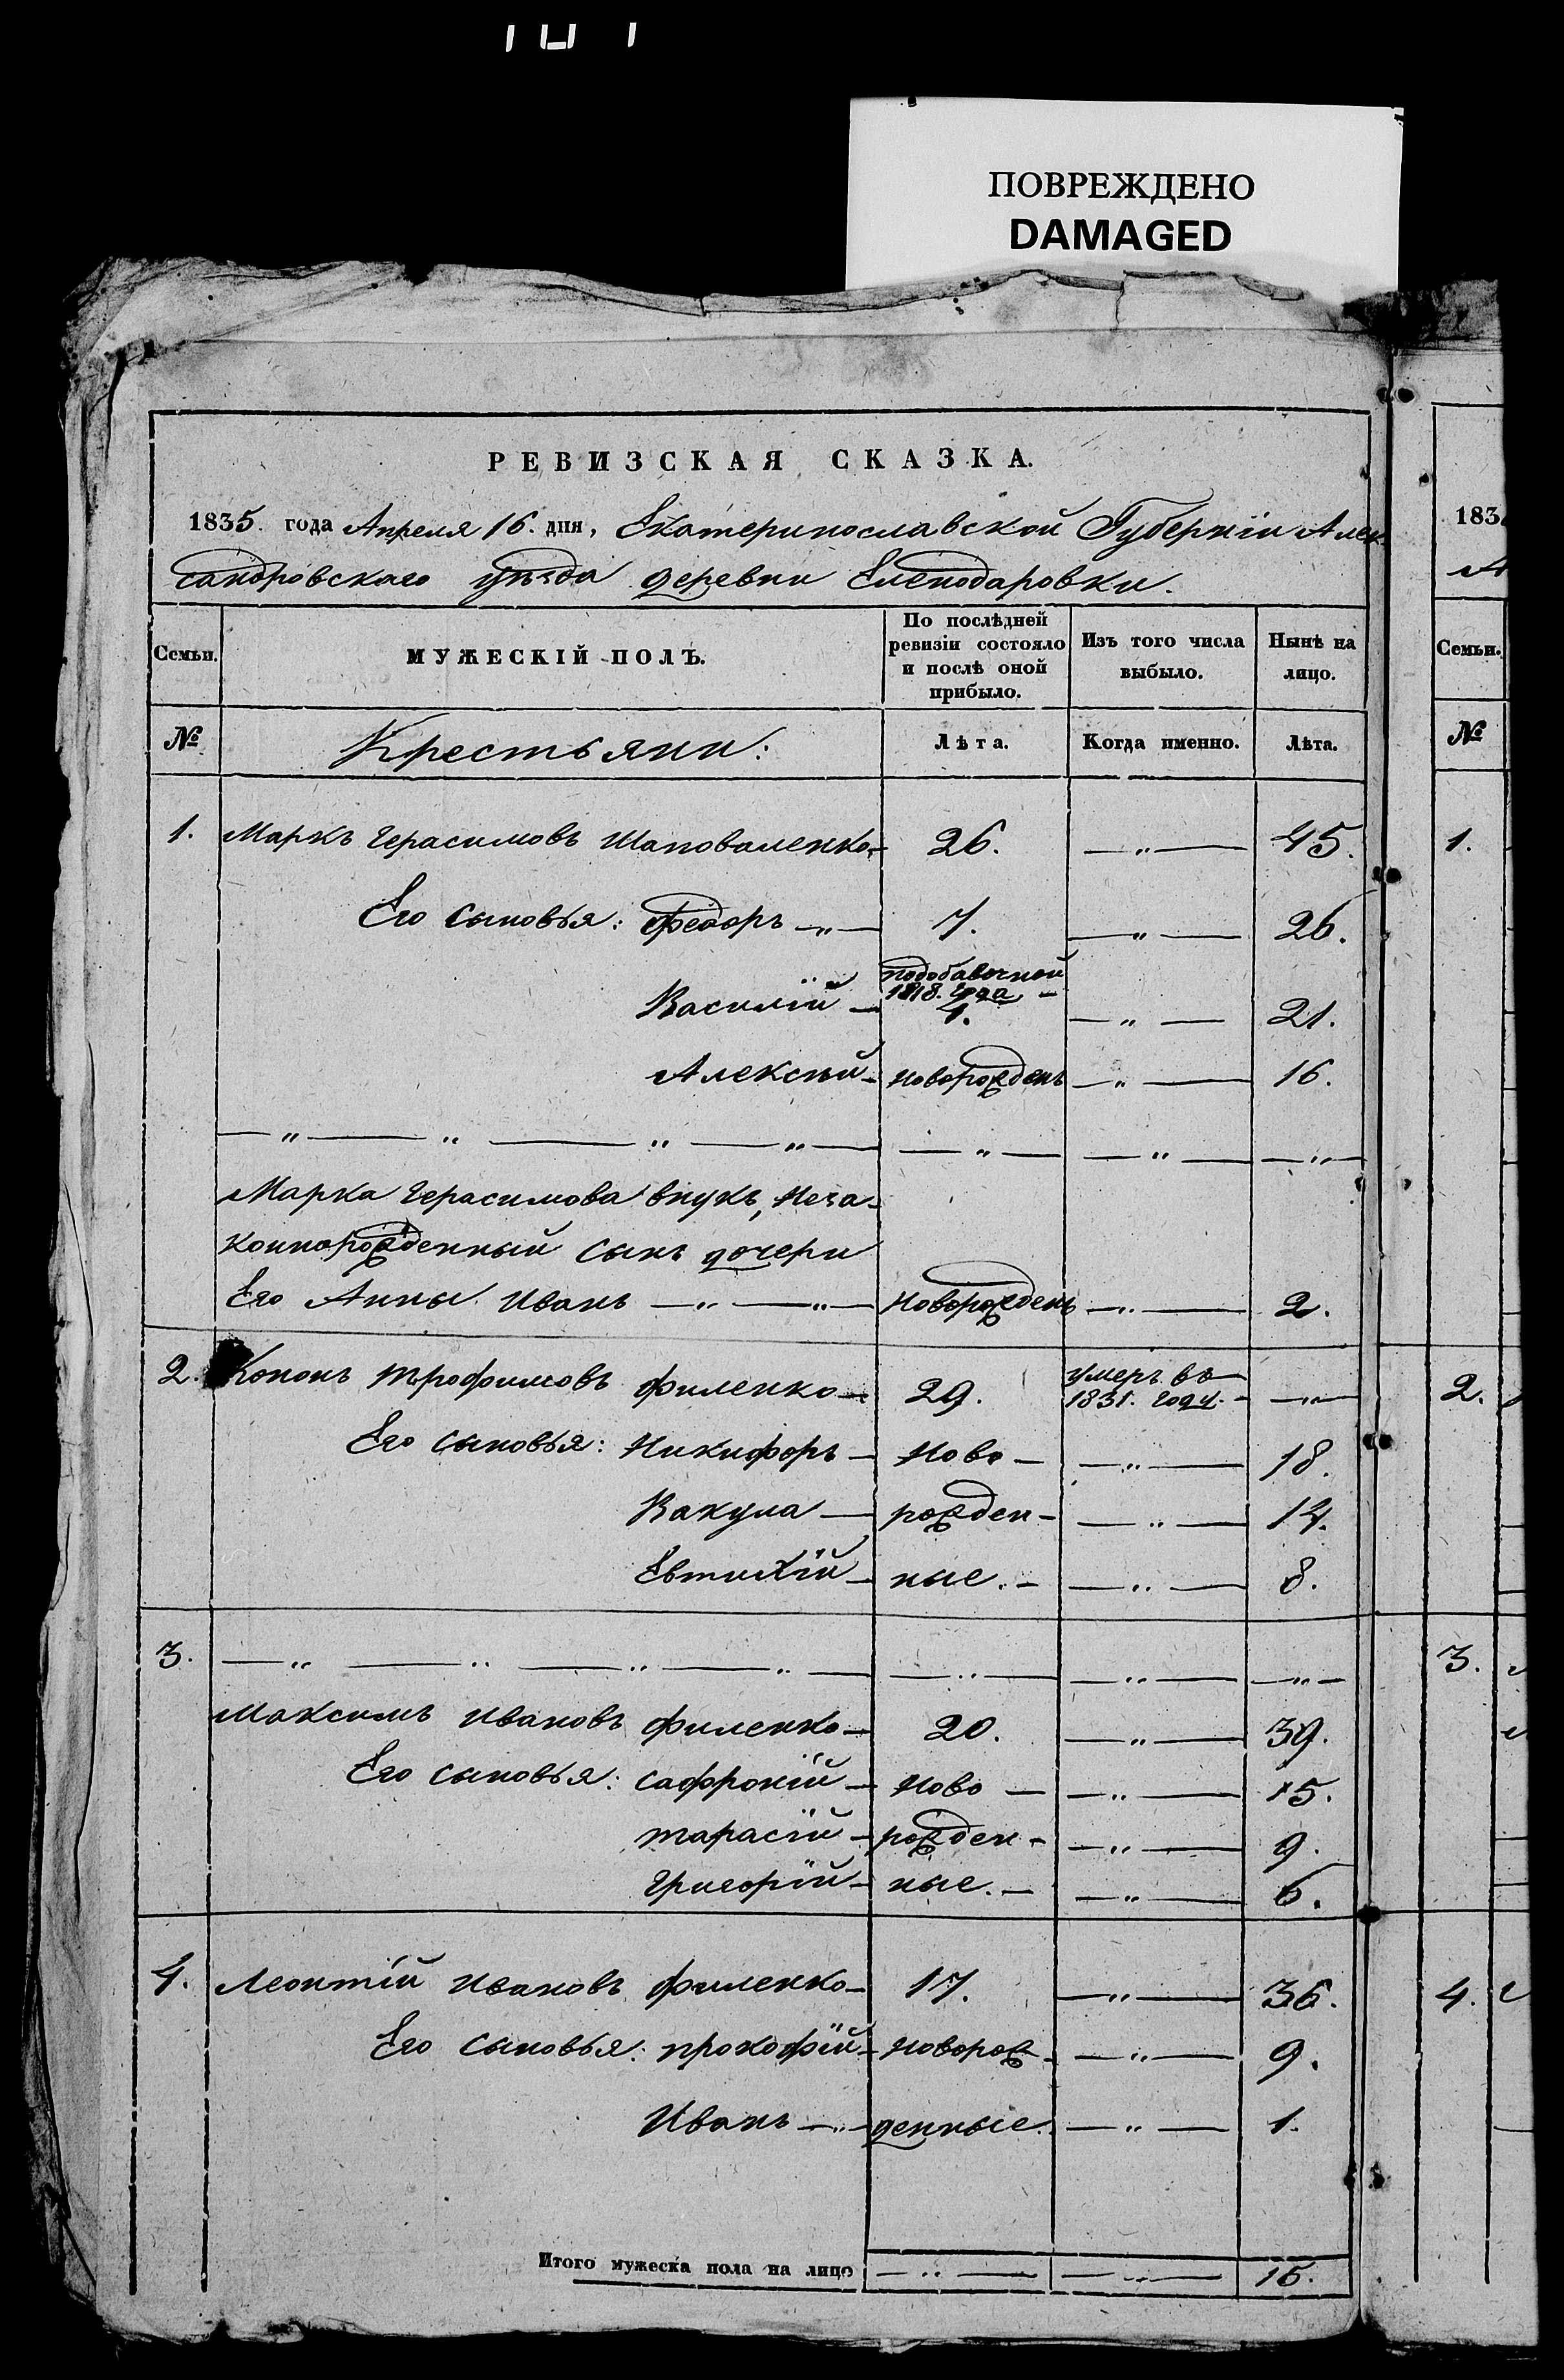 ПОВРЕЖДЕНО
DAMAGED
РЕВИЗСКАЯ СКАЗКА.
1835. года Апреля 16. дня, Екатеринославской Губерніи Алек
сандровскаго уѣзда деревни Еленодаровки.
Семьи. МУЖЕСКІЙ ПОЛЪ. По послѣдней ревизіи состояло и послѣ оной прибыло. Изъ того числа выбыло. Нынѣ на лицо.
№ Крестьяни: Лѣта. Когда именно. Лѣта.
1. Маркъ Герасимовъ Шаповаленко — 26. — „ — 45.
Его сыновья: Федоръ — „ — 7. — „ — 26.
Василій — подобавочной 1818. года — 4. — „ — 21.
Алексѣй — новорожденъ — „ — 16.
— „ — „ — „ — „ — — „ — — „ — — „ —
Марка Герасимова внукъ, неза-
коннорожденный сынъ дочери
Его Анны Иванъ — „ — „ — Новорожденъ — „ — 2.
2. Кононъ Трофимовъ Филенко — 29. умеръ въ 1831. году. — — „ —
Его сыновья: Никифоръ — Ново — — „ — 18.
Вакула — рожден — — „ — 14.
Евтихій — ные. — — „ — 8.
3. — „ — „ — „ — „ — — „ — — „ — — „ —
Максимъ Ивановъ Филенко — 20. — „ — 39.
Его сыновья: Сафроній — Ново — — „ — 15.
Тарасій — рожден — — „ — 9.
Григорій — ные. — — „ — 6.
4. Леонтій Ивановъ Филенко — 17. — „ — 36.
Его сыновья: Прокофій — новорож — — „ — 9.
Иванъ — „ — денные. — „ — 1.
Итого мужеска пола на лицо — „ — — „ — 15.
183
Семьи.
№
1.
2.
3.
4.